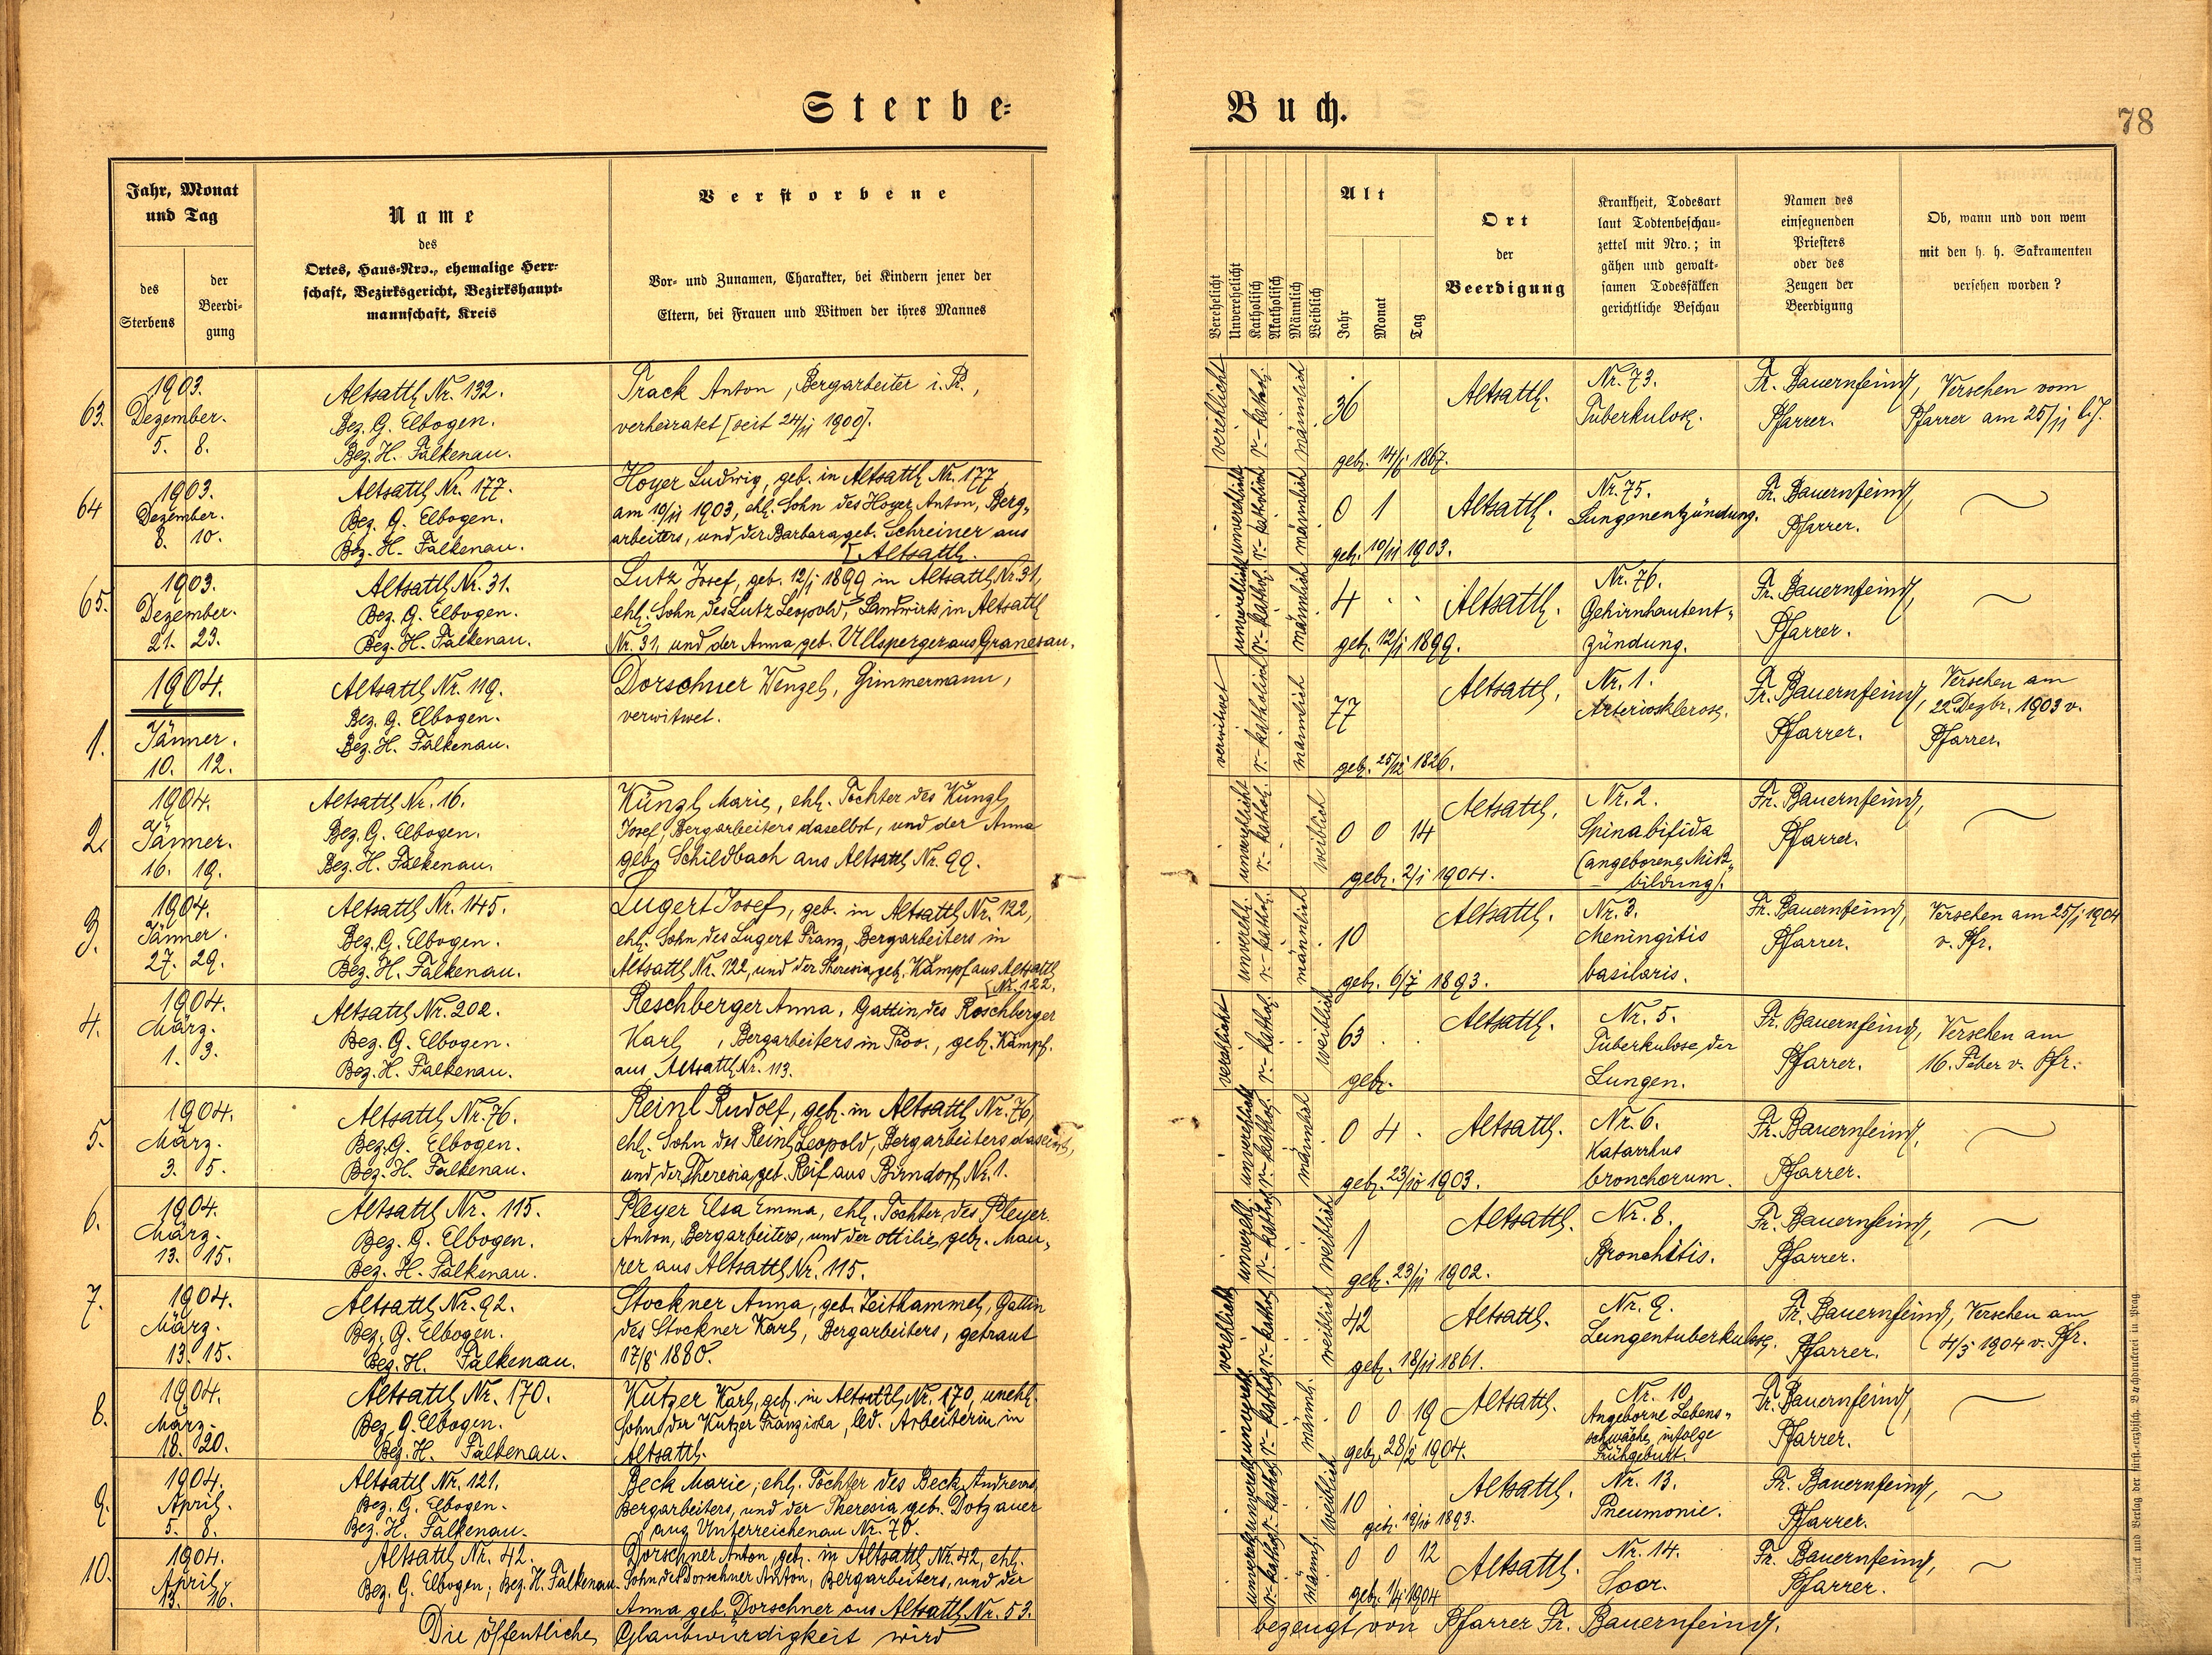 Sterbe-
Buch.
78
Jahr, Monat
und Tag
des
Sterbens
der
Beerdi-
gung
Name
des
Ortes, Haus-Nro., ehemalige Herr-
schaft, Bezirksgericht, Bezirkshaupt-
mannschaft, Kreis
Verstorbene
Vor- und Zunamen, Charakter, bei Kindern jener der
Eltern, bei Frauen und Witwen der ihres Mannes
Verehelicht
Unverehelicht
Katholisch
Akatholisch
Männlich
Weiblich
Alt
Jahr
Monat
Tag
Ort
der
Beerdigung
Krankheit, Todesart
laut Todtenbeschau-
zettel mit Nro.; in
gähen und gewalt-
samen Todesfällen
gerichtliche Beschau
Namen des
einsegnenden
Priesters
oder des
Zeugen der
Beerdigung
Ob, wann und von wem
mit den h. h. Sakramenten
versehen worden?
63.
1903.
Dezember.
5. 8.
Altsattl Nr. 132.
Bez. G. Elbogen.
Bez. H. Falkenau.
Track Anton, Bergarbeiter i. P.,
verheiratet [seit 24/11 1900].
verehelicht
r.-kathol.
männlich
36
geb. 14/ 1867.
Altsattl.
Nr. 73.
Tuberkulose.
Fr. Bauernfeind,
Pfarrer.
Versehen vom
Pfarrer am 25/11 l. J.
64
1903.
Dezember.
8. 10.
Altsattl Nr. 177.
Bez. G. Elbogen.
Bez. H. Falkenau.
Hoyer Ludwig, geb. in Altsattl Nr. 177
am 10/11 1903, ehl. Sohn des Hoyer Anton, Berg-
arbeiters, und der Barbara geb. Schreiner aus
[Altsattl.
unverehlicht
r.-katholisch
männlich
0 1
geb. 10/11 1903.
Altsattl.
Nr. 75.
Lungenentzündung.
Fr. Bauernfeind,
Pfarrer.
65.
1903.
Dezember.
21. 23.
Altsattl Nr. 31.
Bez. G. Elbogen.
Bez. H. Falkenau.
Lutz Josef, geb. 12/1 1899 in Altsattl Nr. 31,
ehl. Sohn des Lutz Leopold, Landwirts in Altsattl
Nr. 31, und der Anna geb. Ullsperger aus Granesau.
unverehlicht
r.-kathol.
männlich
4
geb. 12/1 1899.
Altsattl.
Nr. 76.
Gehirnhautent-
zündung.
Fr. Bauernfeind,
Pfarrer.
1904.
1.
Jänner.
10. 12.
Altsattl Nr. 119.
Bez. G. Elbogen.
Bez. H. Falkenau.
Dorschner Wenzel, Zimmermann,
verwitwet.
verwitwet
r.-katholisch
männlich
77
geb. 25/12 1826.
Altsattl.
Nr. 1.
Arteriosklerose.
Fr. Bauernfeind,
Pfarrer.
Versehen am
22. Dezbr. 1903 v.
Pfarrer.
2.
1904.
Jänner.
16. 19.
Altsattl Nr. 16.
Bez. G. Elbogen.
Bez. H. Falkenau.
Künzl Marie, ehl. Tochter des Künzl
Josef, Bergarbeiters daselbst, und der Anna
geb. Schildbach aus Altsattl Nr. 99.
unverehlicht
r.-kathol.
weiblich
0 0 14
geb. 2/1 1904.
Altsattl.
Nr. 2.
Spina bifida
(angeborene Miß-
bildung).
Fr. Bauernfeind,
Pfarrer.
3.
1904.
Jänner.
27. 29.
Altsattl Nr. 145.
Bez. G. Elbogen.
Bez. H. Falkenau.
Lugert Josef, geb. in Altsattl Nr. 122,
ehl. Sohn des Lugert Franz, Bergarbeiters in
Altsattl Nr. 122, und der Theresia geb. Kämpf aus Altsattl
[Nr. 122.
unverehl.
r.-kathol.
männlich
10
geb. 6/7 1893.
Altsattl.
Nr. 3.
Meningitis
basilaris.
Fr. Bauernfeind,
Pfarrer.
Versehen am 25/1 1904
v. Pfr.
4.
1904.
März.
1. 3.
Altsattl Nr. 202.
Bez. G. Elbogen.
Bez. H. Falkenau.
Reschberger Anna, Gattin des Roschberger
Karl, Bergarbeiters in Prov., geb. Kämpf.
aus Altsattl Nr. 113.
verehlicht
r.-kathol.
weiblich
63
geb.
Altsattl.
Nr. 5.
Tuberkulose der
Lungen.
Fr. Bauernfeind,
Pfarrer.
Versehen am
16. Feber v. Pfr.
5.
1904.
März.
3. 5.
Altsattl Nr. 76.
Bez. G. Elbogen.
Bez. H. Falkenau.
Reinl Rudolf, geb. in Altsattl Nr. 76,
ehl. Sohn des Reinl Leopold, Bergarbeiters daselbst,
und der Theresia geb. Reif aus Birndorf Nr. 1.
unverehlicht
r.-kathol.
männlich
0 4
geb. 23/10 1903.
Altsattl.
Nr. 6.
Katarrhus
bronchorum.
Fr. Bauernfeind,
Pfarrer.
6.
1904.
März.
13. 15.
Altsattl Nr. 115.
Bez. G. Elbogen.
Bez. H. Falkenau.
Pleyer Elsa Emma, ehl. Tochter des Pleyer
Anton, Bergarbeiters, und der Ottilie geb. Mau-
rer aus Altsattl Nr. 115.
unverehl.
r.-kathol.
weiblich
1
geb. 23/11 1902.
Altsattl.
Nr. 8.
Bronchitis.
Fr. Bauernfeind,
Pfarrer.
7.
1904.
März.
13. 15.
Altsattl Nr. 92.
Bez. G. Elbogen.
Bez. H. Falkenau.
Stockner Anna, geb. Zeithammel, Gattin
des Stockner Karl, Bergarbeiters, getraut
17/8 1880.
verehlicht
r.-kathol.
weiblich
42
geb. 18/11 1861.
Altsattl.
Nr. 9.
Lungentuberkulose.
Fr. Bauernfeind,
Pfarrer.
Versehen am
4/3 1904 v. Pfr.
8.
1904.
März.
18. 20.
Altsattl Nr. 170.
Bez. G. Elbogen.
Bez. H. Falkenau.
Kutzer Karl, geb. in Altsattl Nr. 170, unehl.
Sohn der Kutzer Franziska, led. Arbeiterin in
Altsattl.
unverehl.
r.-kathol.
männl.
0 0 19
geb. 28/2 1904.
Altsattl.
Nr. 10.
Angeborne Lebens-
schwäche, infolge
Frühgeburt.
Fr. Bauernfeind,
Pfarrer.
9.
1904.
April.
5. 8.
Altsattl Nr. 121.
Bez. G. Elbogen.
Bez. H. Falkenau.
Beck Marie, ehl. Tochter des Beck Andreas,
Bergarbeiters, und der Theresia geb. Dotzauer
aus Unterreichenau Nr. 70.
unverehl.
r.-kathol.
weiblich
10
geb. 19/10 1893.
Altsattl.
Nr. 13.
Pneumonie.
Fr. Bauernfeind,
Pfarrer.
10.
1904.
April.
13. 16.
Altsattl Nr. 42.
Bez. G. Elbogen; Bez. H. Falkenau.
Dorschner Anton, geb. in Altsattl Nr. 42, ehl.
Sohn des Dorschner Anton, Bergarbeiters, und der
Anna geb. Dorschner aus Altsattl Nr. 53.
unverehl.
r.-kathol.
männl.
0 0 12
geb. 1904
Altsattl.
Nr. 14.
Soor.
Fr. Bauernfeind,
Pfarrer.
Die öffentliche Glaubwürdigkeit wird
bezeugt von Pfarrer Fr. Bauernfeind.
Druck und Verlag der fürst-erzbisch. Buchdruckerei in Prag.